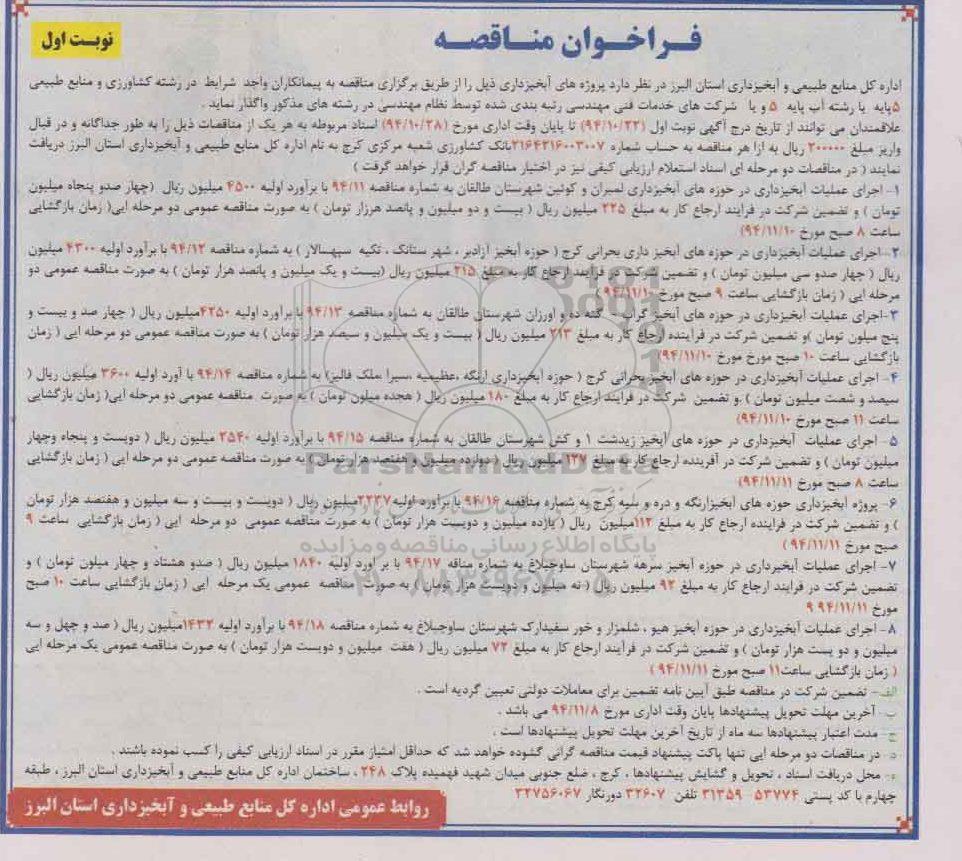 فراخوان مناقصه
نوبت اول
اداره کل منابع طبیعی و آبخیزداری استان البرز در نظر دارد پروژه های آبخیزداری ذیل را از طریق برگزاری مناقصه به پیمانکاران واجد شرایط در رشته کشاورزی و منابع طبیعی
۵پایه یا رشته آب پایه ۵ و یا شرکت های خدمات فنی مهندسی رتبه بندی شده توسط نظام مهندسی در رشته های مذکور واگذار نماید .
علاقمندان می توانند از تاریخ درج آگهی نوبت اول (۹۴/۱۰/۲۲) تا پایان وقت اداری مورخ (۹۴/۱۰/۲۸) اسناد مربوطه به هر یک از مناقصات ذیل را به طور جداگانه و در قبال
واریز مبلغ ۲۰۰۰۰۰ ریال به ازا هر مناقصه به حساب شماره ۲۱۶۴۳۱۶۰۰۳۰۰۷بانک کشاورزی شعبه مرکزی کرج به نام اداره کل منابع طبیعی و آبخیزداری استان البرز دریافت
نمایند ( در مناقصات دو مرحله ای اسناد استعلام ارزیابی کیفی نیز در اختیار مناقصه گران قرار خواهد گرفت )
۱- اجرای عملیات آبخیزداری در حوزه های آبخیزداری لمبران و کوئین شهرستان طالقان به شماره مناقصه ۹۴/۱۱ با برآورد اولیه ۴۵۰۰ میلیون ریال (چهار صدو پنجاه میلیون
تومان ) و تضمین شرکت در فرایند ارجاع کار به مبلغ ۲۲۵ میلیون ریال ( بیست و دو میلیون و پانصد هرزار تومان ) به صورت مناقصه عمومی دو مرحله ایی( زمان بازگشایی
ساعت ۸ صبح مورخ ۹۴/۱۱/۱۰)
۲- اجرای عملیات آبخیزداری در حوزه های آبخیز داری بحرانی کرج ( حوزه آبخیز آزادبر ، شهر ستانک ، تکیه سپهسالار ) به شماره مناقصه ۹۴/۱۲ با برآورد اولیه ۴۳۰۰ میلیون
ریال ( چهار صدو سی میلیون تومان ) و تضمین شرکت در فرآیند ارجاع کار به مبلغ ۲۱۵ میلیون ریال (بیست و یک میلیون و پانصد هزار تومان ) به صورت مناقصه عمومی دو
مرحله ایی ( زمان بازگشایی ساعت ۹ صبح مورخ ۹۴/۱۱/۱۰)
۳-اجرای عملیات آبخیزداری در حوزه های آبخیز گراب ، گته ده و اورازان شهرستان طالقان به شماره مناقصه ۹۴/۱۳ با برآورد اولیه ۴۲۵۰میلیون ریال ( چهار صد و بیست و
پنج میلون تومان )و تضمین شرکت در فرآینده ارجاع کار به مبلغ ۲۱۳ میلیون ریال ( بیست و یک میلیون و سیصد هزار تومان ) به صورت مناقصه عمومی دو مرحله ایی ( زمان
بازگشایی ساعت ۱۰ صبح مورخ مورخ ۹۴/۱۱/۱۰)
۴- اجرای عملیات آبخیزداری در حوزه های آبخیز بحرانی کرج ( حوزه آبخیزداری ارنگه ،عظیمیه ،سیرا ،ملک فالیز) به شماره مناقصه ۹۴/۱۴ با آورد اولیه ۳۶۰۰ میلیون ریال (
سیصد و شصت میلیون تومان ) .و تضمین شرکت در فرآیند ارجاع کار به مبلغ ۱۸۰ میلیون ریال ( هجده میلون تومان ) به صورت مناقصه عمومی دو مرحله ایی( زمان بازگشایی
ساعت ۱۱ صبح مورخ ۹۴/۱۱/۱۰)
۵- اجرای عملیات آبخیزداری در حوزه های آبخیز زیدشت ۱ و کش شهرستان طالقان به شماره مناقصه ۹۴/۱۵ با برآورد اولیه ۲۵۴۰ میلیون ریال ( دویست و پنجاه وچهار
میلیون تومان ) و تضمین شرکت در آفرینده ارجاع کار به مبلغ ۱۲۷ میلیون ریال ( دوازده میلیون و هفتصد هزار تومان ) به صورت مناقصه عمومی دو مرحله ایی ( زمان بازگشایی
ساعت ۸ صبح مورخ ۹۴/۱۱/۱۱)
۶- پروژه آبخیزداری حوزه های آبخیزارنگه و دره و سلیه کرج به شماره مناقصه ۹۴/۱۶ با برآورد اولیه۲۲۳۷میلیون ریال ( دویست و بیست و سه میلیون و هفتصد هزار تومان
) و تضمین شرکت در فراینده ارجاع کار به مبلغ ۱۱۲میلیون ریال ( یازده میلیون و دویست هزار تومان ) به صورت مناقصه عمومی دو مرحله ایی ( زمان بازگشایی ساعت ۹
صبح مورخ ۹۴/۱۱/۱۱ )
۷- اجرای عملیات آبخیزداری در حوزه آبخیز سرهه شهرستان ساوجبلاغ به شماره مناقه ۹۴/۱۷ با بر آورد اولیه ۱۸۴۰ میلیون ریال ( صدو هشتاد و چهار میلون تومان ) و
تضمین شرکت در فرایند ارجاع کار به مبلغ ۹۲ میلیون ریال ( نه میلیون و دویست هزار تومان ) به صورت مناقصه عمومی یک مرحله ایی ( زمان بازگشایی ساعت ۱۰ صبح
مورخ ۹۴/۱۱/۱۱ ۹
۸- اجرای عملیات آبخیزداری در حوزه آبخیز هیو ، شلمزار و خور سفیدارک شهرستان ساوجبلاغ به شماره مناقصه ۹۴/۱۸ با برآورد اولیه ۱۴۳۲میلیون ریال ( صد و چهل و سه
میلیون و دو یست هزار تومان ) و تضمین شرکت در فرآیند ارجاع کار به مبلغ ۷۲ میلیون ریال ( هفت میلیون و دویست هزار تومان ) به صورت مناقصه عمومی یک مرحله ایی
( زمان بازگشایی ساعت۱۱ صبح مورخ ۹۴/۱۱/۱۱ )
الف- تضمین شرکت در مناقصه طبق آیین نامه تضمین برای معاملات دولتی تعیین گردیه است .
ب- آخرین مهلت تحویل پیشنهادها پایان وقت اداری مورخ ۹۴/۱۱/۸ می باشد .
ج- مدت اعتبار پیشنهادها سه ماه از تاریخ آخرین مهلت تحویل پیشنهادها است .
د- در مناقصات دو مرحله ایی تنها پاکت پیشنهاد قیمت مناقصه گرانی گشوده خواهد شد که حداقل امتیاز مقرر در اسناد ارزیابی کیفی را کسب نموده باشند .
ه- محل دریافت اسناد ، تحویل و گشایش پیشنهادها ، کرج ، ضلع جنوبی میدان شهید فهمیده پلاک ۲۴۸ ، ساختمان اداره کل منابع طبیعی و آبخیزداری استان البرز ، طبقه
چهارم با کد پستی ۵۳۷۷۴-۳۱۳۵۹ تلفن ۳۲۶۰۷ دورنگار ۳۲۷۵۶۰۶۷
روابط عمومی اداره کل منابع طبیعی و آبخیزداری استان البرز
ParsNamadData
پایگاه اطلاع رسانی مناقصه و مزایده